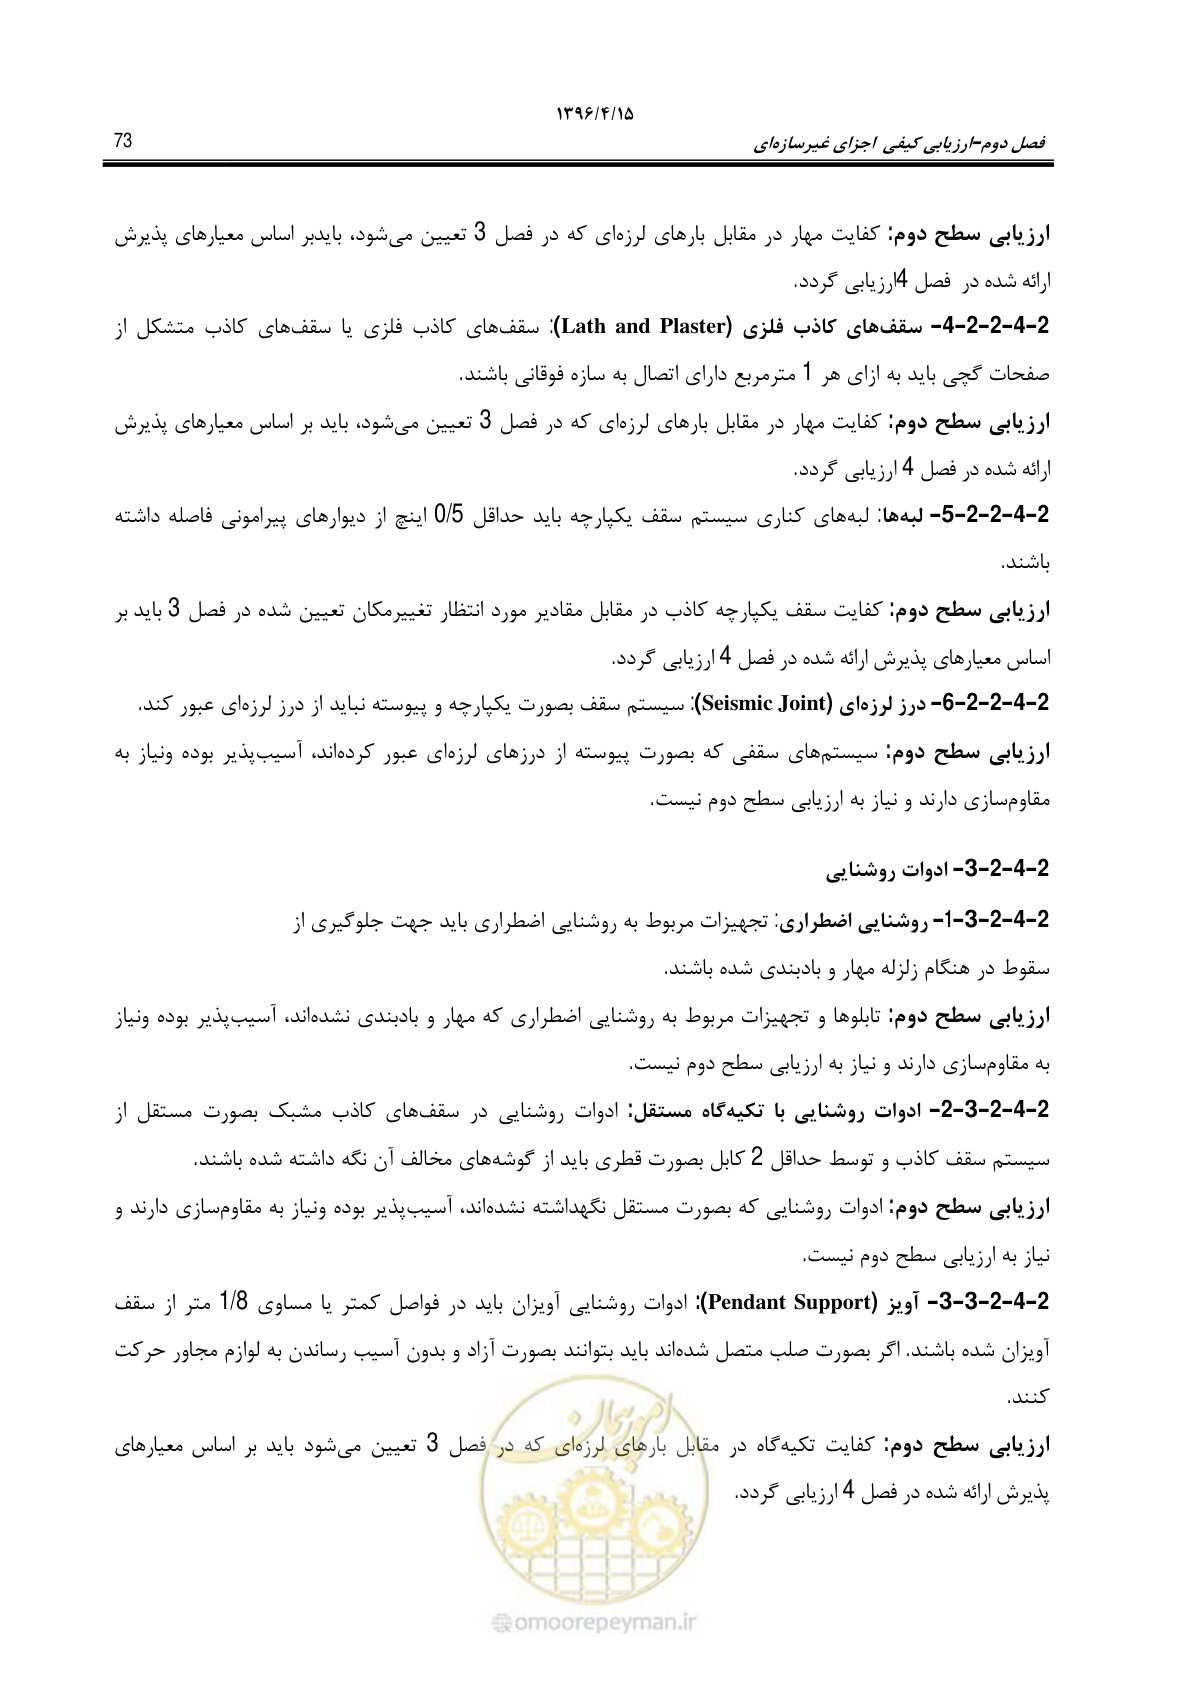 ۱۳۹۶/۴/۱۵
فصل دوم-ارزیابی کیفی اجزای غیرسازه‌ای
73
ارزیابی سطح دوم: کفایت مهار در مقابل بارهای لرزه‌ای که در فصل 3 تعیین می‌شود، بایدبر اساس معیارهای پذیرش
ارائه شده در فصل 4ارزیابی گردد.
2-4-2-2-4- سقف‌های کاذب فلزی (Lath and Plaster): سقف‌های کاذب فلزی یا سقف‌های کاذب متشکل از
صفحات گچی باید به ازای هر 1 مترمربع دارای اتصال به سازه فوقانی باشند.
ارزیابی سطح دوم: کفایت مهار در مقابل بارهای لرزه‌ای که در فصل 3 تعیین می‌شود، باید بر اساس معیارهای پذیرش
ارائه شده در فصل 4 ارزیابی گردد.
2-4-2-2-5- لبه‌ها: لبه‌های کناری سیستم سقف یکپارچه باید حداقل 0/5 اینچ از دیوارهای پیرامونی فاصله داشته
باشند.
ارزیابی سطح دوم: کفایت سقف یکپارچه کاذب در مقابل مقادیر مورد انتظار تغییرمکان تعیین شده در فصل 3 باید بر
اساس معیارهای پذیرش ارائه شده در فصل 4 ارزیابی گردد.
2-4-2-2-6- درز لرزه‌ای (Seismic Joint): سیستم سقف بصورت یکپارچه و پیوسته نباید از درز لرزه‌ای عبور کند.
ارزیابی سطح دوم: سیستم‌های سقفی که بصورت پیوسته از درزهای لرزه‌ای عبور کرده‌اند، آسیب‌پذیر بوده ونیاز به
مقاوم‌سازی دارند و نیاز به ارزیابی سطح دوم نیست.
2-4-2-3- ادوات روشنایی
2-4-2-3-1- روشنایی اضطراری: تجهیزات مربوط به روشنایی اضطراری باید جهت جلوگیری از
سقوط در هنگام زلزله مهار و بادبندی شده باشند.
ارزیابی سطح دوم: تابلوها و تجهیزات مربوط به روشنایی اضطراری که مهار و بادبندی نشده‌اند، آسیب‌پذیر بوده ونیاز
به مقاوم‌سازی دارند و نیاز به ارزیابی سطح دوم نیست.
2-4-2-3-2- ادوات روشنایی با تکیه‌گاه مستقل: ادوات روشنایی در سقف‌های کاذب مشبک بصورت مستقل از
سیستم سقف کاذب و توسط حداقل 2 کابل بصورت قطری باید از گوشه‌های مخالف آن نگه داشته شده باشند.
ارزیابی سطح دوم: ادوات روشنایی که بصورت مستقل نگهداشته نشده‌اند، آسیب‌پذیر بوده ونیاز به مقاوم‌سازی دارند و
نیاز به ارزیابی سطح دوم نیست.
2-4-2-3-3- آویز (Pendant Support): ادوات روشنایی آویزان باید در فواصل کمتر یا مساوی 1/8 متر از سقف
آویزان شده باشند. اگر بصورت صلب متصل شده‌اند باید بتوانند بصورت آزاد و بدون آسیب رساندن به لوازم مجاور حرکت
کنند.
ارزیابی سطح دوم: کفایت تکیه‌گاه در مقابل بارهای لرزه‌ای که در فصل 3 تعیین می‌شود باید بر اساس معیارهای
پذیرش ارائه شده در فصل 4 ارزیابی گردد.
امور پیمان
@omoorepeyman.ir